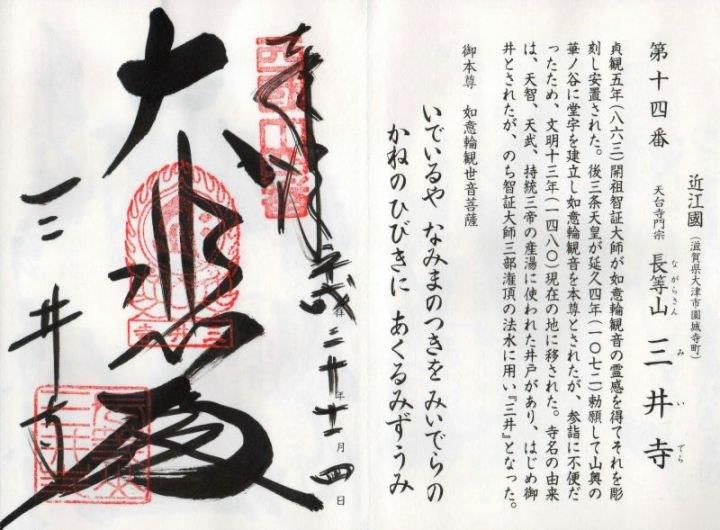 近江國(滋賀県大津市園城寺町)
第十四番 天台寺門宗 長等山 三井寺
ながらさん みいでら
貞観五年(八六三)開祖智証大師が如意輪観音の霊感を得てそれを彫
刻し安置された。後三条天皇が延久四年(一〇七二)勅願して山奥の
華ノ谷に堂宇を建立し如意輪観音を本尊とされたが、参詣に不便だ
ったため、文明十三年(一四八〇)現在の地に移された。寺名の由来
は、天智、天武、持統三帝の産湯に使われた井戸があり、はじめ御
井とされたが、のち智証大師三部潅頂の法水に用い『三井』となった。
御本尊 如意輪観世音菩薩
いでいるや なみまのつきを みいでらの
かねのひびきに あくるみずうみ
年 月 日
西國十四番
大悲殿
三井寺
三井寺